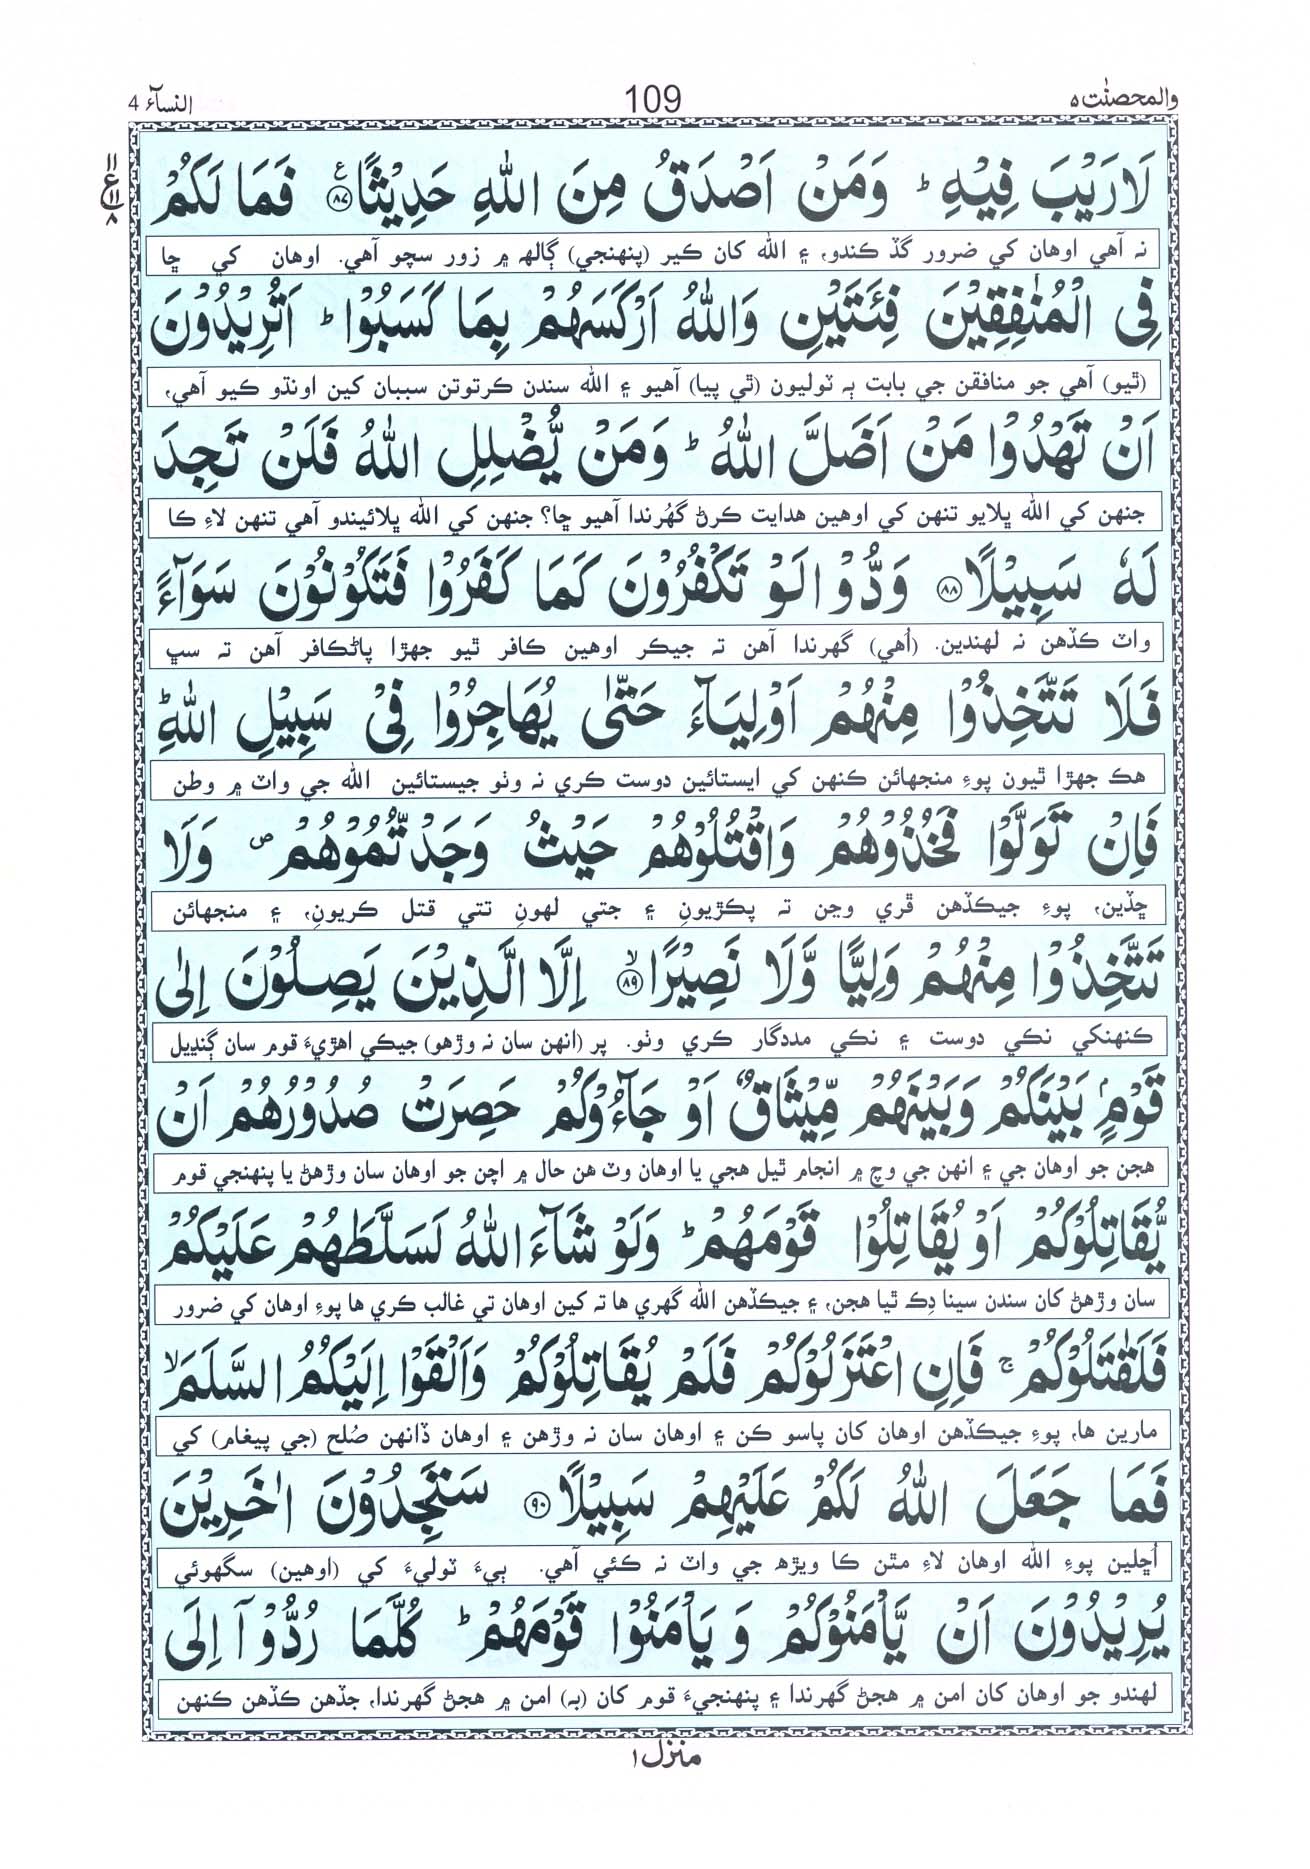 والمحصنٰت ٥
109
النسآء 4
١١
ع
١١
٨
لَارَيْبَ فِيْهِ ؕ وَمَنْ اَصْدَقُ مِنَ اللّٰهِ حَدِيْثًا ۧ ﴿٨٧﴾ فَمَا لَكُمْ
نہ آهي اوهان کي ضرور گڏ ڪندو، ۽ الله کان ڪير (پنهنجي) ڳالهہ ۾ زور سچو آهي. اوهان کي ڇا
فِي الْمُنٰفِقِيْنَ فِئَتَيْنِ وَاللّٰهُ اَرْكَسَهُمْ بِمَا كَسَبُوْا ؕ اَتُرِيْدُوْنَ
(ٿيو) آهي جو منافقن جي بابت ٻہ ٽوليون (ٿي پيا) آهيو ۽ الله سندن ڪرتوتن سببان کين اونڌو ڪيو آهي،
اَنْ تَهْدُوْا مَنْ اَضَلَّ اللّٰهُ ؕ وَمَنْ يُّضْلِلِ اللّٰهُ فَلَنْ تَجِدَ
جنهن کي الله ڀلايو تنهن کي اوهين هدايت ڪرڻ گهُرندا آهيو ڇا؟ جنهن کي الله ڀلائيندو آهي تنهن لاءِ ڪا
لَهٗ سَبِيْلًا ﴿٨٨﴾ وَدُّوْا لَوْ تَكْفُرُوْنَ كَمَا كَفَرُوْا فَتَكُوْنُوْنَ سَوَآءً
واٽ ڪڏهن نہ لهندين. (اُهي) گهرندا آهن تہ جيڪر اوهين ڪافر ٿيو جهڙا پاڻڪافر آهن تہ سڀ
فَلَا تَتَّخِذُوْا مِنْهُمْ اَوْلِيَآءَ حَتّٰى يُهَاجِرُوْا فِيْ سَبِيْلِ اللّٰهِ ؕ
هڪ جهڙا ٿيون پوءِ منجهائن ڪنهن کي ايستائين دوست ڪري نہ وٺو جيستائين الله جي واٽ ۾ وطن
فَاِنْ تَوَلَّوْا فَخُذُوْهُمْ وَاقْتُلُوْهُمْ حَيْثُ وَجَدْتُّمُوْهُمْ ۪ وَلَا
ڇڏين، پوءِ جيڪڏهن ڦري وڃن تہ پڪڙيونِ ۽ جتي لهونِ تتي قتل ڪريونِ، ۽ منجهائن
تَتَّخِذُوْا مِنْهُمْ وَلِيًّا وَّلَا نَصِيْرًا ۙ ﴿٨٩﴾ اِلَّا الَّذِيْنَ يَصِلُوْنَ اِلٰى
ڪنهنکي نڪي دوست ۽ نڪي مددگار ڪري وٺو. پر (انهن سان نہ وڙهو) جيڪي اهڙيءَ قوم سان ڳنڍيل
قَوْمٍۭ بَيْنَكُمْ وَبَيْنَهُمْ مِّيْثَاقٌ اَوْ جَآءُوْكُمْ حَصِرَتْ صُدُوْرُهُمْ اَنْ
هجن جو اوهان جي ۽ انهن جي وچ ۾ انجام ٿيل هجي يا اوهان وٽ هن حال ۾ اچن جو اوهان سان وڙهڻ يا پنهنجي قوم
يُّقَاتِلُوْكُمْ اَوْ يُقَاتِلُوْا قَوْمَهُمْ ؕ وَلَوْ شَآءَ اللّٰهُ لَسَلَّطَهُمْ عَلَيْكُمْ
سان وڙهڻ کان سندن سينا دِڪ ٿيا هجن، ۽ جيڪڏهن الله گهري ها تہ کين اوهان تي غالب ڪري ها پوءِ اوهان کي ضرور
فَلَقٰتَلُوْكُمْ ۚ فَاِنِ اعْتَزَلُوْكُمْ فَلَمْ يُقَاتِلُوْكُمْ وَاَلْقَوْا اِلَيْكُمُ السَّلَمَ ۙ
مارين ها، پوءِ جيڪڏهن اوهان کان پاسو ڪن ۽ اوهان سان نہ وڙهن ۽ اوهان ڏانهن صُلح (جي پيغام) کي
فَمَا جَعَلَ اللّٰهُ لَكُمْ عَلَيْهِمْ سَبِيْلًا ﴿٩٠﴾ سَتَجِدُوْنَ اٰخَرِيْنَ
اُڇلين پوءِ الله اوهان لاءِ مٿن ڪا ويڙهہ جي واٽ نہ ڪئي آهي. ٻيءَ ٽوليءَ کي (اوهين) سگهوئي
يُرِيْدُوْنَ اَنْ يَّاْمَنُوْكُمْ وَيَاْمَنُوْا قَوْمَهُمْ ؕ كُلَّمَا رُدُّوْٓا اِلَى
لهندو جو اوهان کان امن ۾ هجڻ گهرندا ۽ پنهنجيءَ قوم کان (بہ) امن ۾ هجڻ گهرندا، جڏهن ڪڏهن ڪنهن
منزل ١